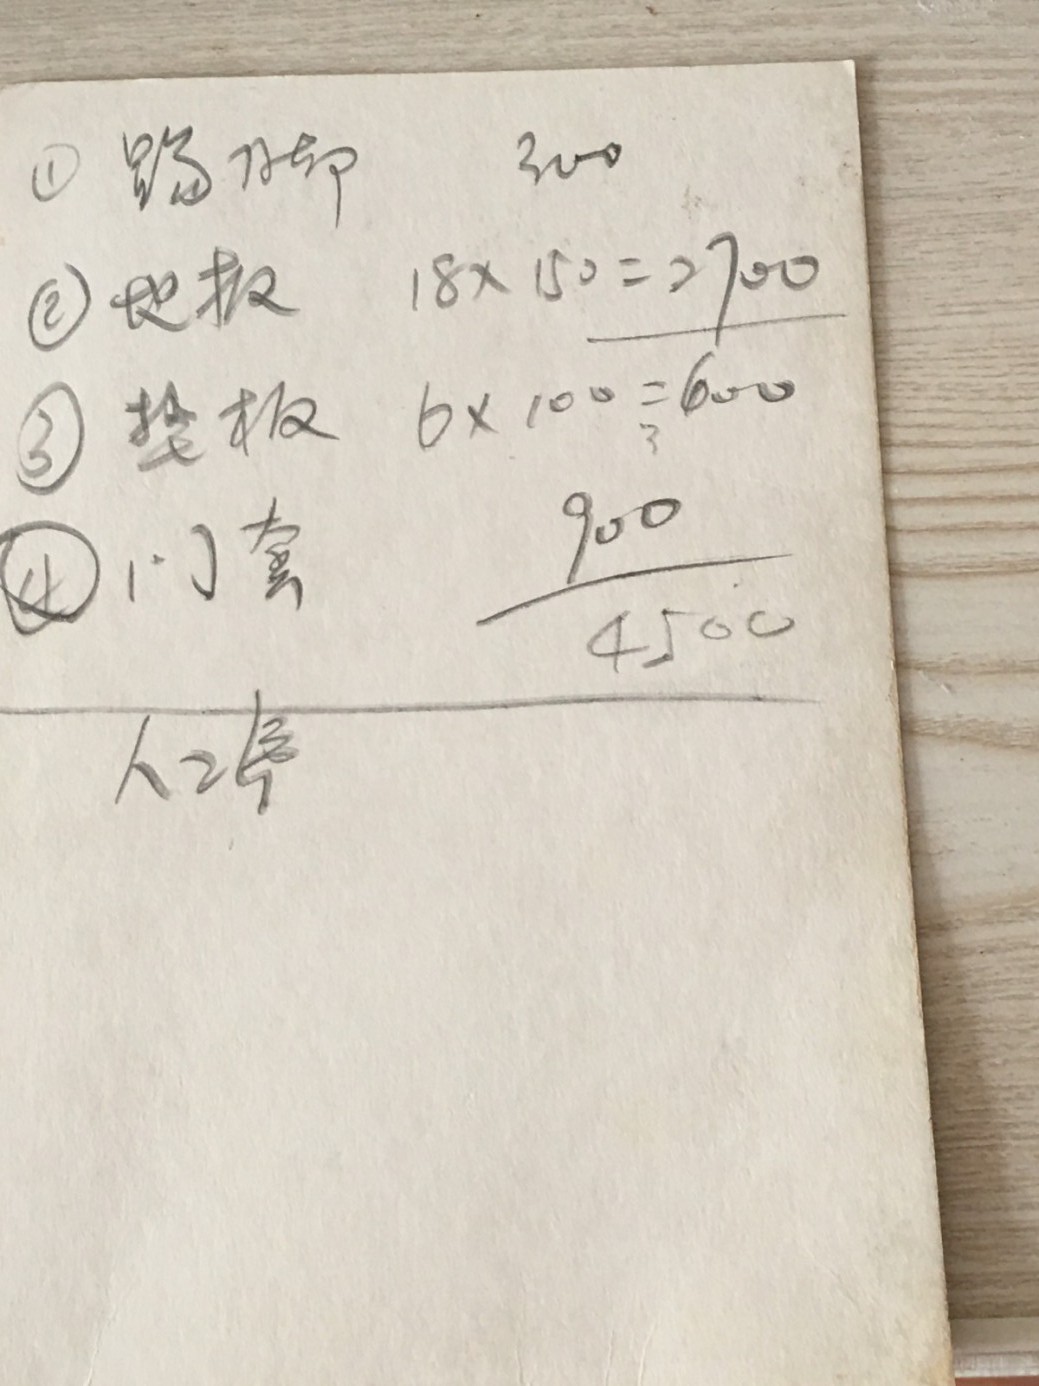 ① 踢脚 300
② 地板 18×150=2700
③ 垫板 6×100=600
④ 门套 900
4500
人工